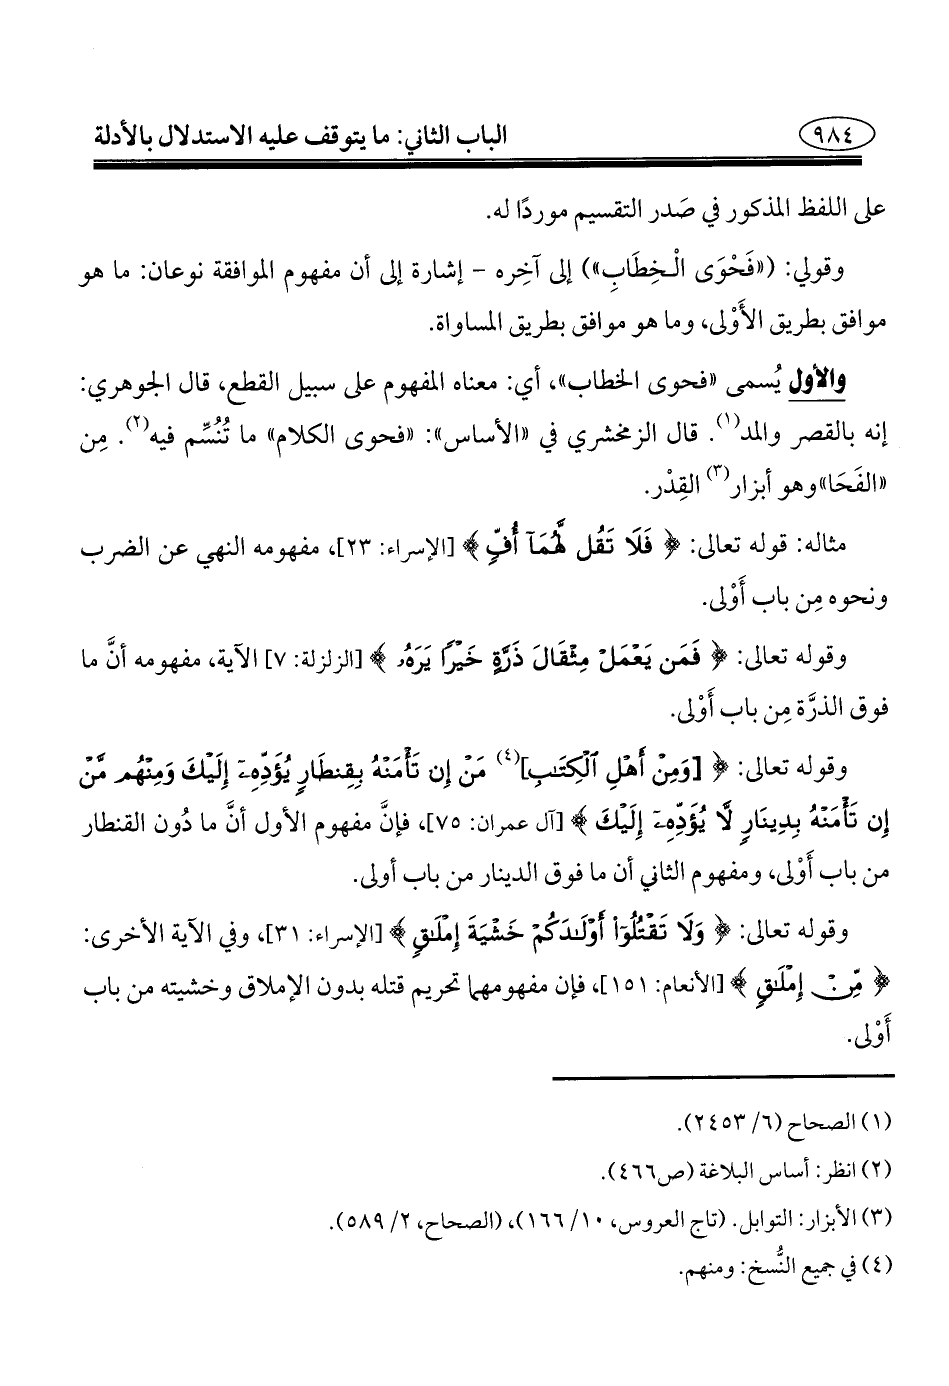 ٩٨٤
الباب الثاني: ما يتوقف عليه الاستدلال بالأدلة
على اللفظ المذكور في صَدر التقسيم موردًا له.
وقولي: («فَحْوَى الْخِطَابِ») إلى آخِره - إشارة إلى أن مفهوم الموافقة نوعان: ما هو
موافق بطريق الأَوْلى، وما هو موافق بطريق المساواة.
والأول يُسمى «فحوى الخطاب»، أي: معناه المفهوم على سبيل القطع، قال الجوهري:
إنه بالقصر والمد(١). قال الزمخشري في «الأساس»: «فحوى الكلام» ما تُنُسِّم فيه(٢). مِن
«الفَحَا»وهو أبزار(٣) القِدْر.
مثاله: قوله تعالى: ﴿ فَلَا تَقُل لَّهُمَآ أُفٍّ ﴾ [الإسراء: ٢٣]، مفهومه النهي عن الضرب
ونحوه مِن باب أَوْلى.
وقوله تعالى: ﴿ فَمَن يَعْمَلْ مِثْقَالَ ذَرَّةٍ خَيْرًا يَرَهُۥ ﴾ [الزلزلة: ٧] الآية، مفهومه أنَّ ما
فوق الذرَّة مِن باب أَوْلى.
وقوله تعالى: ﴿ [وَمِنْ أَهْلِ ٱلْكِتَٰبِ](٤) مَنْ إِن تَأْمَنْهُ بِقِنطَارٍ يُؤَدِّهِۦٓ إِلَيْكَ وَمِنْهُم مَّنْ
إِن تَأْمَنْهُ بِدِينَارٍ لَّا يُؤَدِّهِۦٓ إِلَيْكَ ﴾ [آل عمران: ٧٥]، فإنَّ مفهوم الأول أنَّ ما دُون القنطار
من باب أَوْلى، ومفهوم الثاني أن ما فوق الدينار من باب أولى.
وقوله تعالى: ﴿ وَلَا تَقْتُلُوٓا۟ أَوْلَٰدَكُمْ خَشْيَةَ إِمْلَٰقٍ ﴾ [الإسراء: ٣١]، وفي الآية الأخرى:
﴿ مِّنْ إِمْلَٰقٍ ﴾ [الأنعام: ١٥١]، فإن مفهومهما تحريم قتله بدون الإملاق وخشيته من باب
أَوْلى.
(١) الصحاح (٦/ ٢٤٥٣).
(٢) انظر: أساس البلاغة (ص٤٦٦).
(٣) الأبزار: التوابل. (تاج العروس، ١٠/ ١٦٦)، (الصحاح، ٢/ ٥٨٩).
(٤) في جميع النُّسخ: ومنهم.